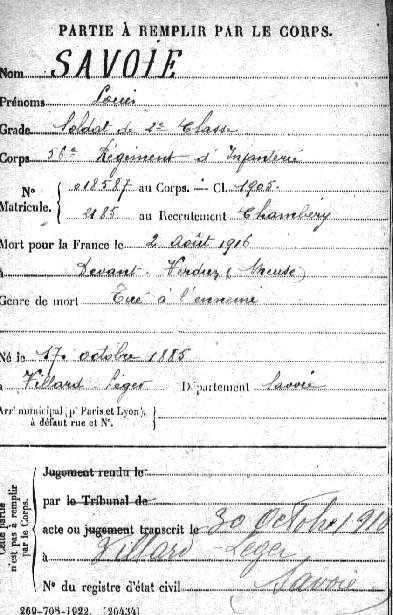 PARTIE À REMPLIR PAR LE CORPS.
Nom SAVOIE
Prénoms Louis
Grade Soldat de 2e Classe
Corps 56e Régiment d'Infanterie
N° Matricule. { 018587 au Corps. — Cl. 1905.
2185 au Recrutement Chambéry
Mort pour la France le 2 août 1916
à Devant Verdun (Meuse)
Genre de mort Tué à l'ennemi
Né le 17 octobre 1885
à Villard-Léger Département Savoie
Arrt municipal (pr Paris et Lyon), à défaut rue et N°. }
Cette partie n'est pas à remplir par le Corps.
Jugement rendu le
par le Tribunal de
acte ou jugement transcrit le 30 Octobre 1916
à Villard-Leger
N° du registre d'état civil Savoie
269-708-1922. [26434]